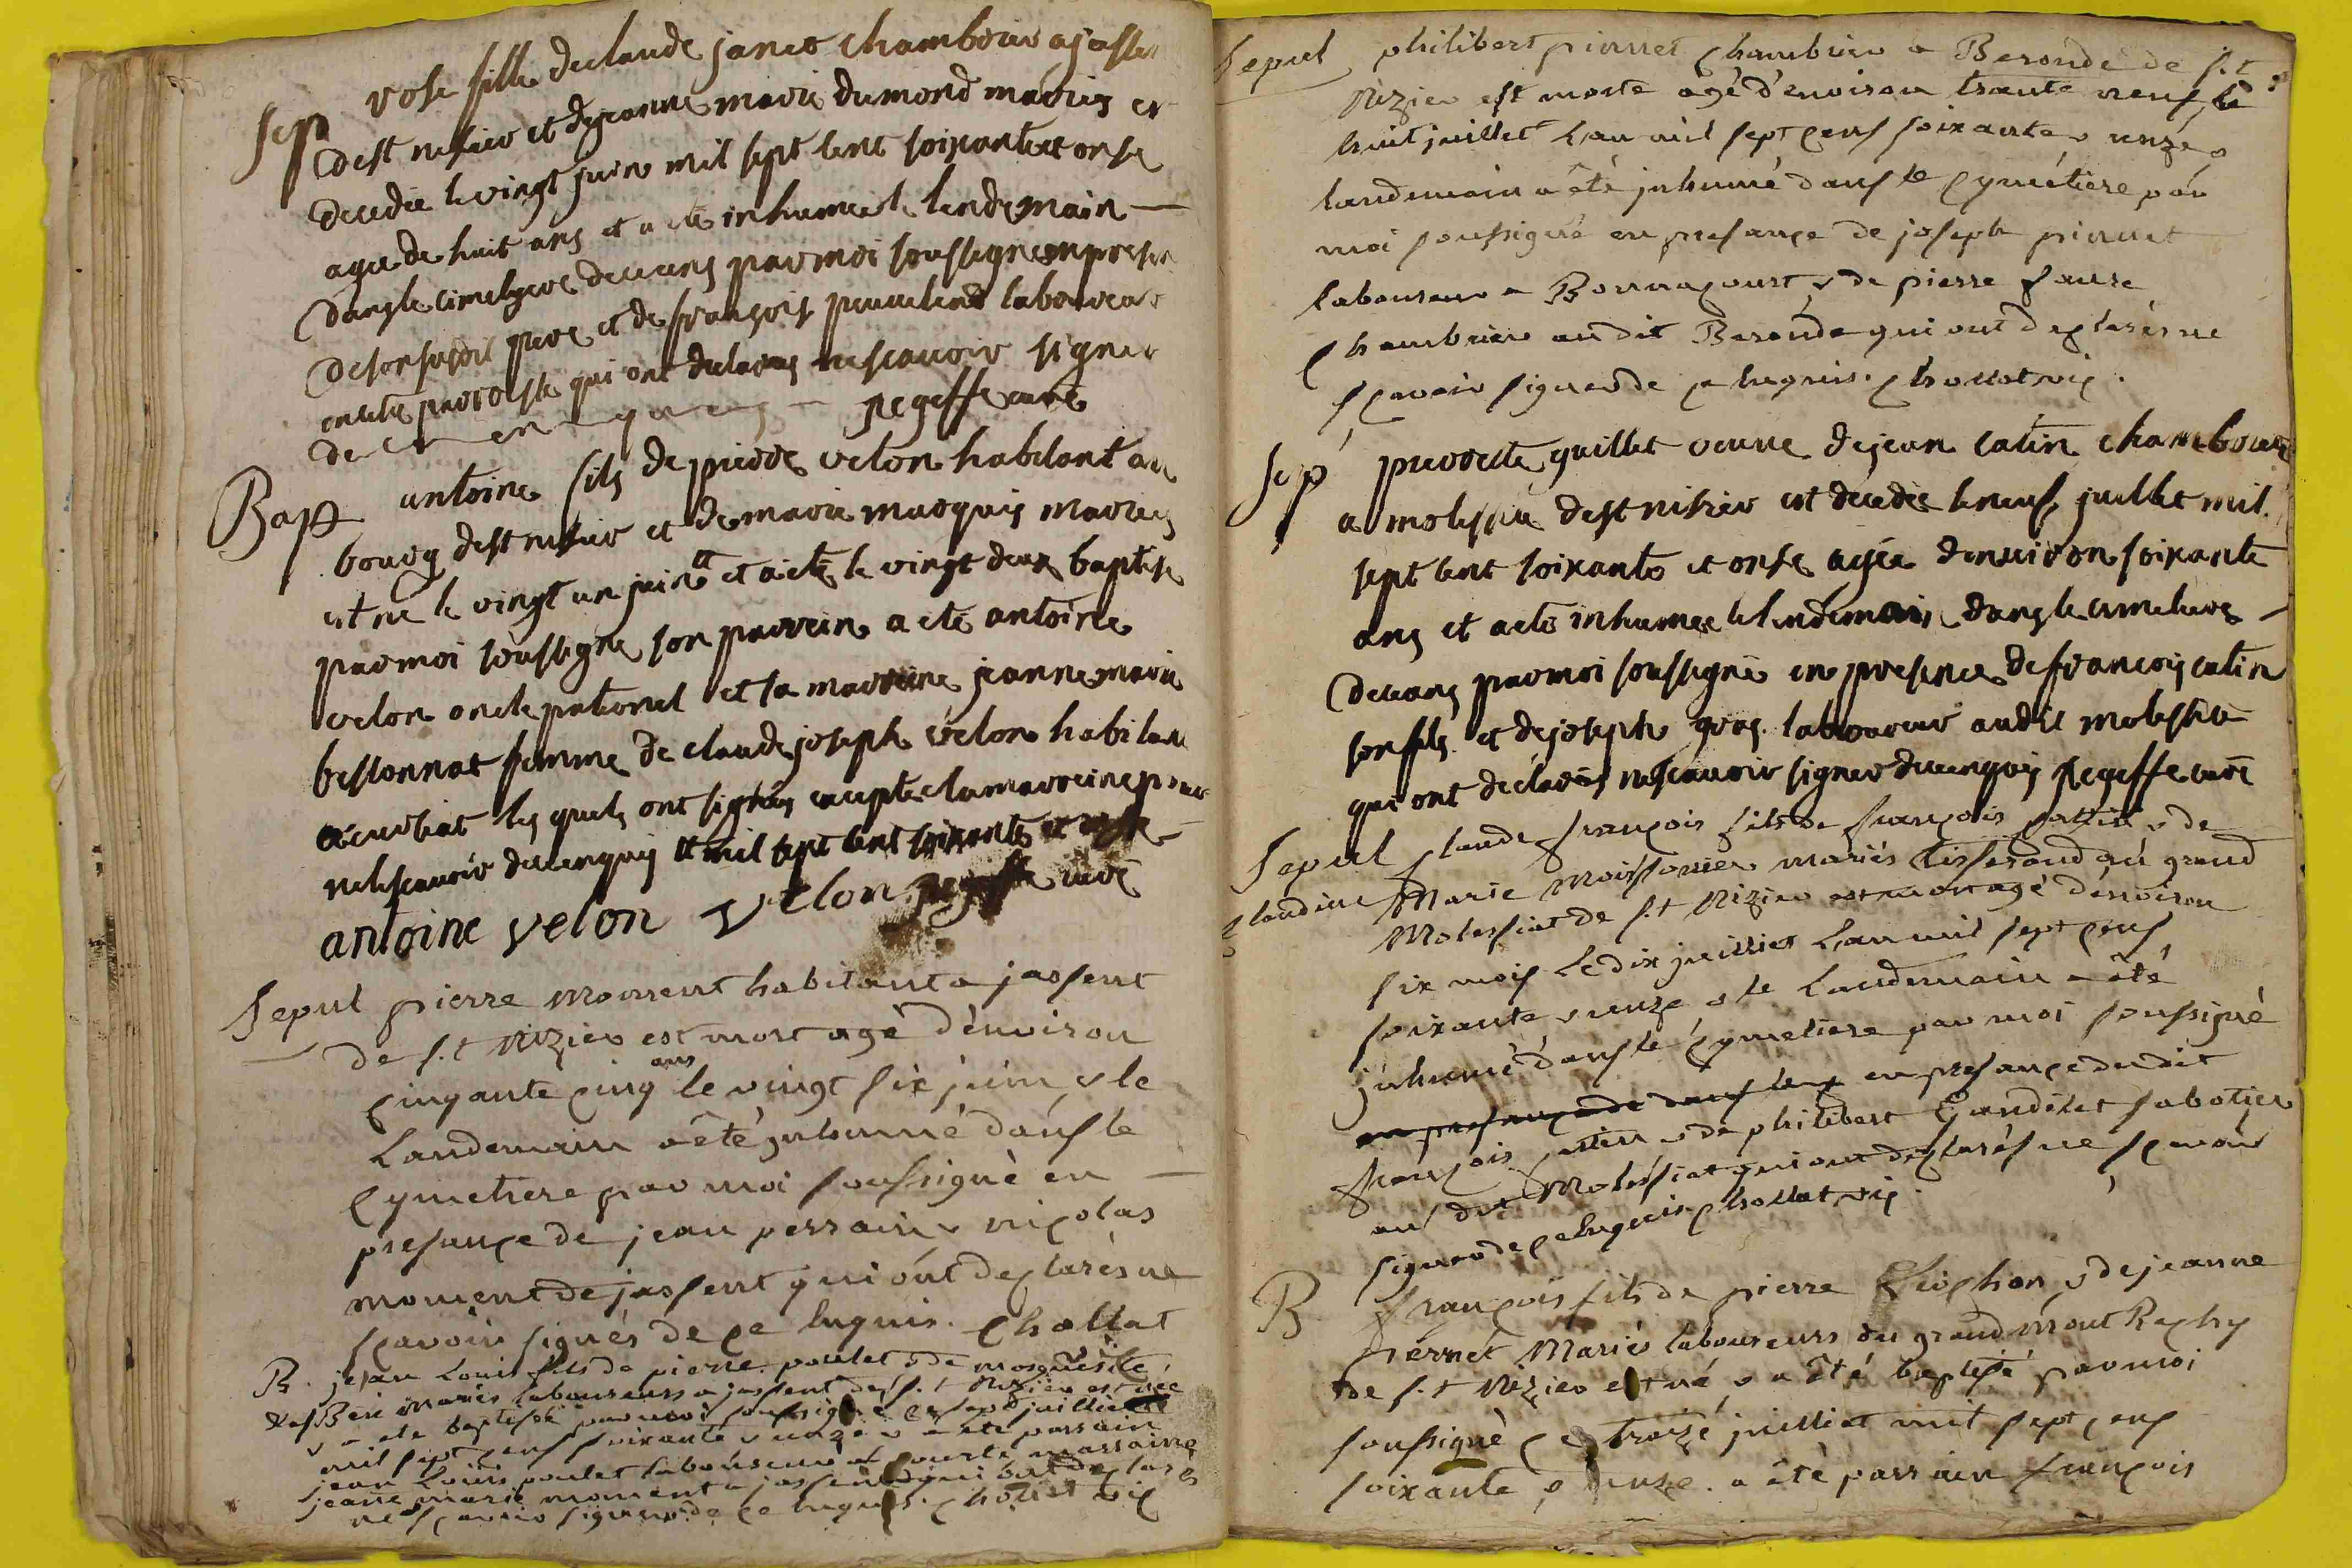 Sep rose fille de claude janet chambrier a jassen
de st nisier et de jeanne marie dumond mariés est
decedée le vingt juin mil sept cent soixante et onse
agée de huit ans et a eté inhumée le lendemain
dans le cimetiere de ceans par moi soussigné en presen
de son susdit pere et de françois peuvelend laboureur
en cette paroisse qui ont declarés ne scavoir signer
de ce enquis regeffe curé
Bapt antoine fils de pierre velon habitant au
bourg de st nisier et de marie marquis mariés
est né le vingt un juin tt et a eté le vingt deux baptisé
par moi soussigné son parrein a eté antoine
velon oncle paternel et sa marreine jeanne marie
bessonnat femme de claude joseph velon habitan
a curtiat les quels ont signés excepté la marreine pour
ne le scavoir de ce enquis tt mil sept cent soixante et onse
antoine velon velon regeffe curé
Sepul pierre Morrent habitant a jassent
de s.t Nizier est mort agé d'environ
cinqante cinq ans le vingt six juin & le
Landemain a été juhumé dans le
cymetiere par moi soussigné en
presance de jean perrain & nicolas
moment de jassent qui ont declarés ne
scavoir signés de ce luquis. chollat
B. jean Louis fils de pierre poulet & de
mariés laboureurs a jassent de s.t Nizier est née
& a eté baptisé par moi soussigné ce sept juilliet
mil sept cens soixante & unze & a eté parrain
jean Louis poulet laboureur et marraine
jeane marie moment a jassent qui ont declarés
ne scavoir signer de ce luquis. chollat vic
Sepul philibert pirruet chambrier a Beronde de s.t
Nizier est morte agé d'enoiron trante neuf le
huit juillet Lan mil sept cens soixante & unze &
landemain a été juhumé dans le cymétiere par
moi soussigné en presance de joseph pirruet
laboureur a Bonnacourt & de pierre faure
chambrier au dit Beronde qui ont declarés ne
scavoir signer de ce luquis. chollat vic.
Sep pierrette guillet veuve de jean catin chambriere
a molessia de st nisier est decedée le neuf juillet mil
sept cent soixante et onse agée d'environ soixante
ans et a eté inhumée le lendemain dans le cimetiere
de ceans par moi soussigné en presence de françois catin
son fils et de joseph gras laboureur audit molessia
qui ont déclarés ne scavoir signer de ce enquis regeffe curé
Sepul claude françois fils de françois puttin & de
claudine Marie Moissonier mariés tisserand au grand
Molessiat de s.t Nizier est mort agé d'enoiron
six mois Le dix juilliet Lan mil sept cens
soixante & unze & le Landemain a été
juhumé dans le cymetiere par moi soussigné
en presance de dans le c en presance dudit
françois puttin & de philibert Gandilet sabotier
au dit Molessiat qui ont declarés ne scavoir
signer de ce luquis. chollat vic.
B françois fils de pierre & de jeanne
pernet Mariés laboureurs du grand mont Rachy
de s.t Nizier est né & a été baptisé par moi
soussigné ce traizé juilliet mil sept cens
soixante & unze. a été parrain françois